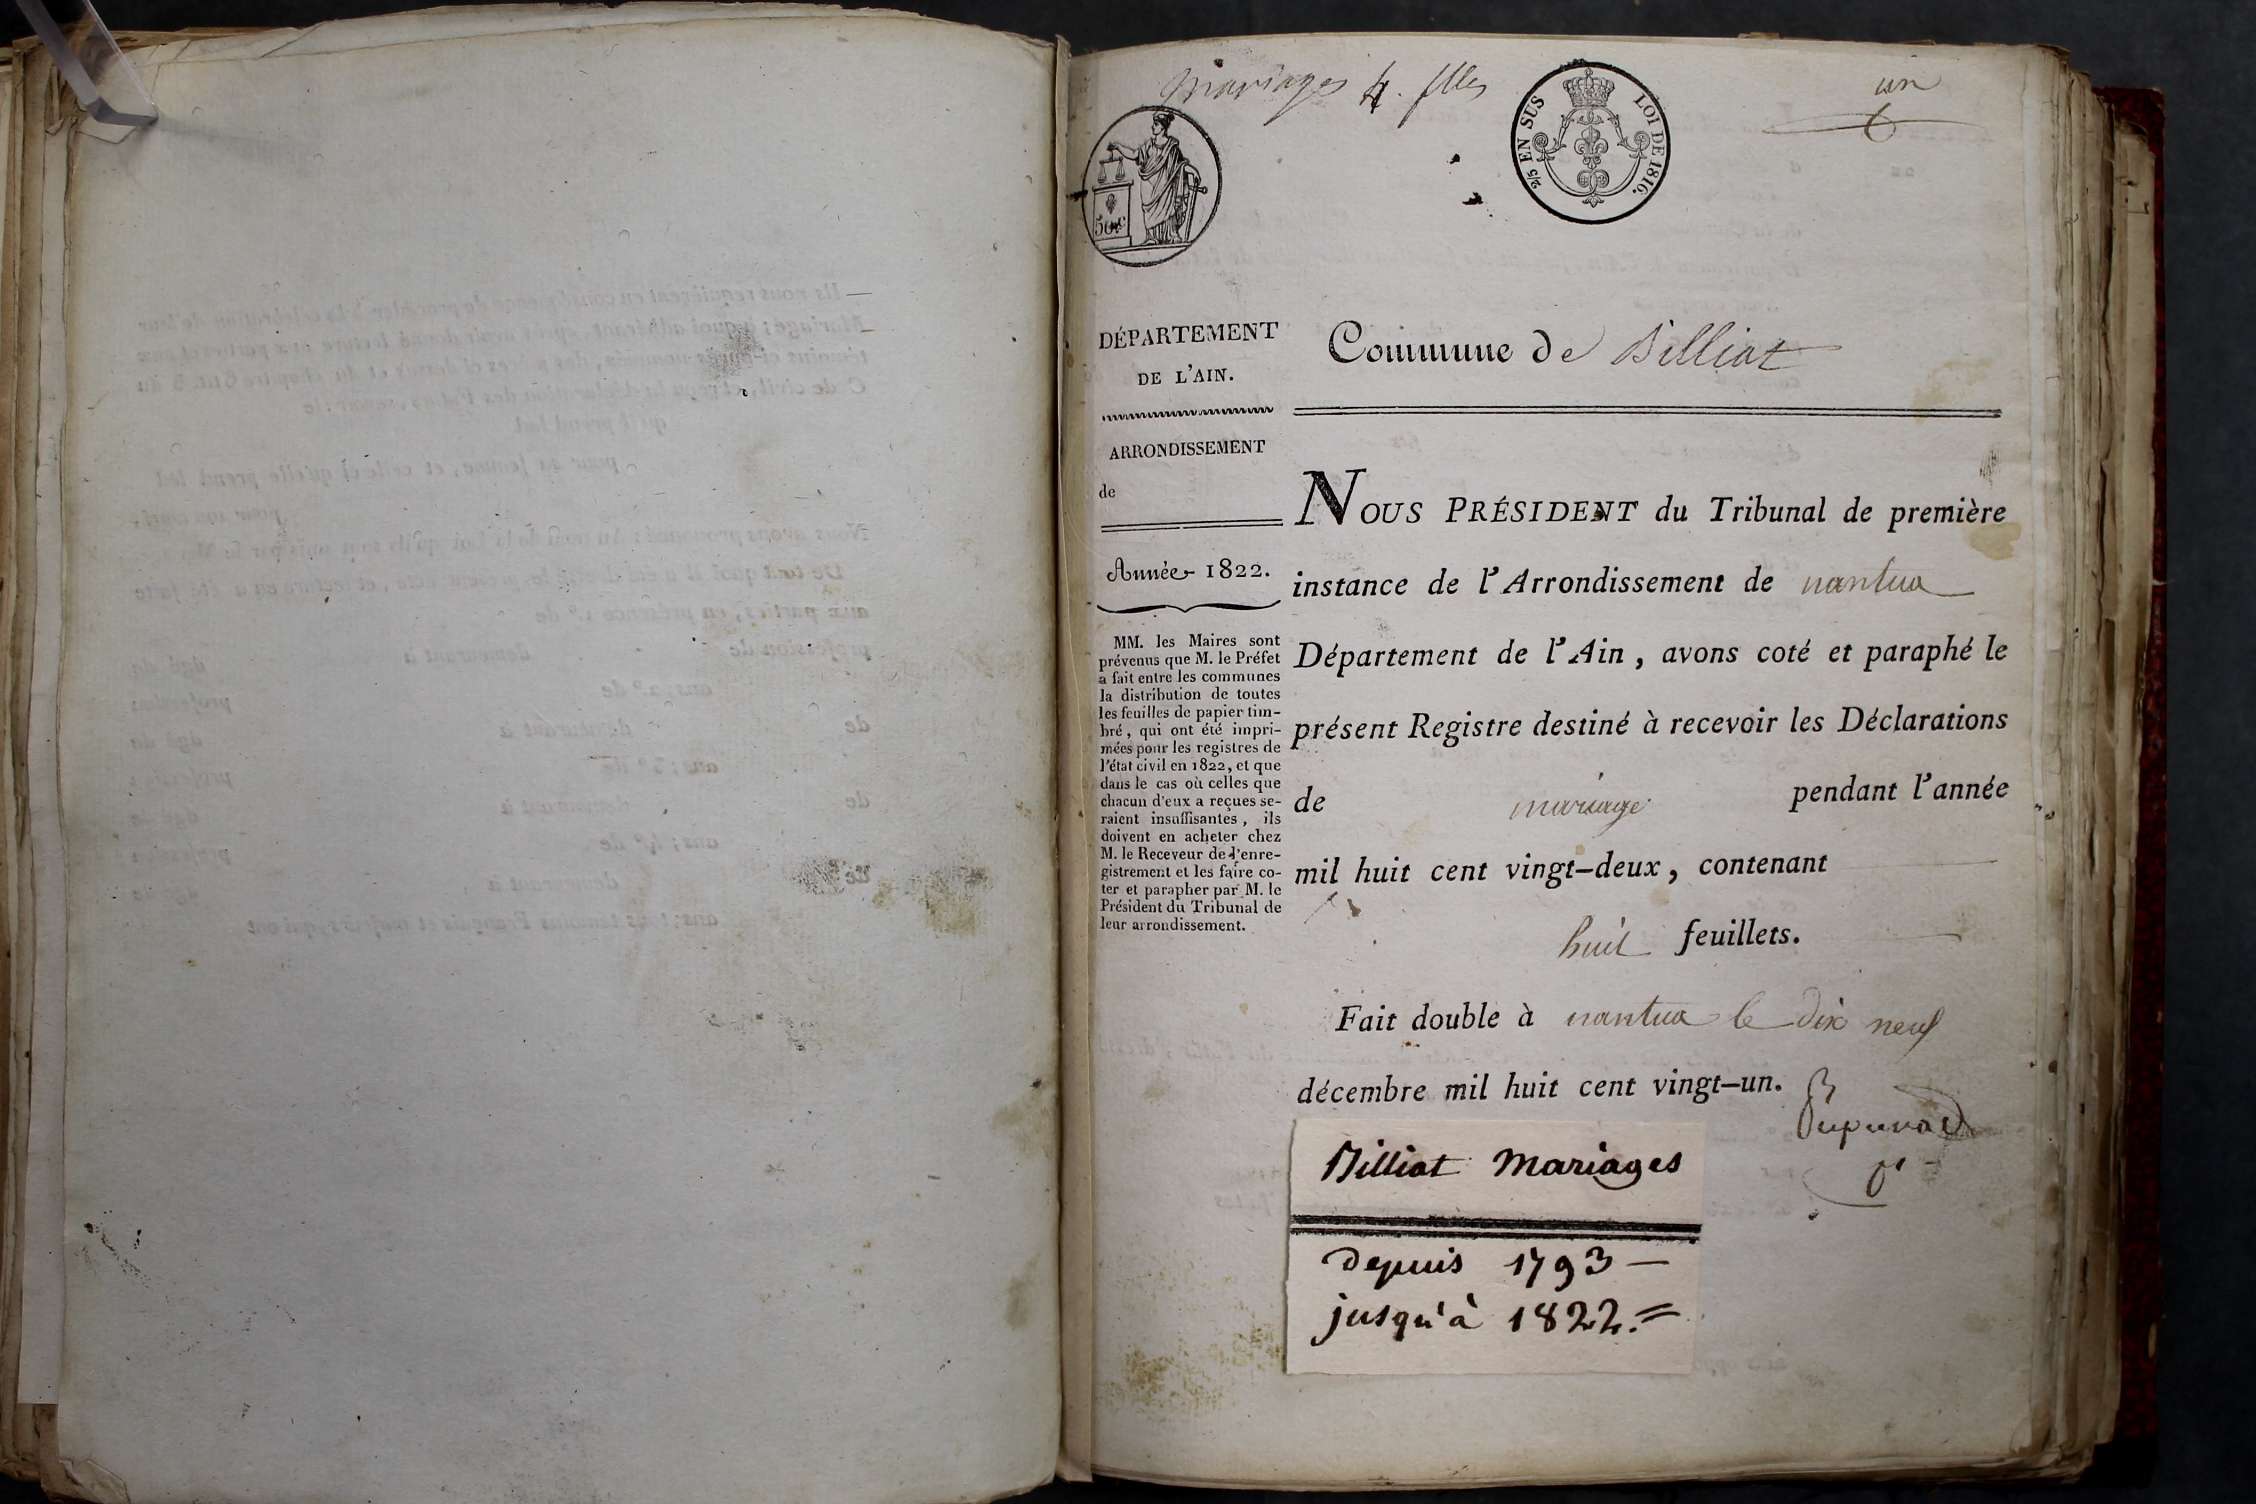 mariages 4. flles
un
2/5 EN SUS
LOI DE 1816.
50c
DÉPARTEMENT
DE L'AIN.
ARRONDISSEMENT
de
Année 1822.
MM. les Maires sont
prévenus que M. le Préfet
a fait entre les communes
la distribution de toutes
les feuilles de papier tim-
bré, qui ont été impri-
mées pour les registres de
l'état civil en 1822, et que
dans le cas où celles que
chacun d'eux a reçues se-
raient insuffisantes, ils
doivent en acheter chez
M. le Receveur de l'enre-
gistrement et les faire co-
ter et parapher par M. le
Président du Tribunal de
leur arrondissement.
Commune de Billiat
NOUS PRÉSIDENT du Tribunal de première
instance de l'Arrondissement de nantua
Département de l'Ain, avons coté et paraphé le
présent Registre destiné à recevoir les Déclarations
de mariage pendant l'année
mil huit cent vingt-deux, contenant
huit feuillets.
Fait double à nantua le dix neuf
décembre mil huit cent vingt-un.
Billiat Mariages
depuis 1793 —
jusqu'à 1822. =